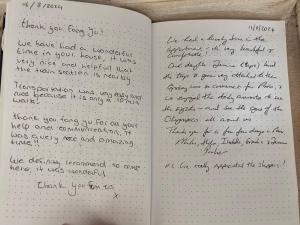 6/8/2024
Thank you Fang Yu!
We have had a wonderful
time in your house, it was
very nice and helpful that
the train station is nearby
Transportation was very easy and
nice because it is only a 10min
walk!
Thank you fang yu for all your
help and communication, it
was a very nice and amazing
time!!
We definitely recommend to come
here, it was wonderful
Thank you from us
x
11/8/2024
We had a lovely time in the
appartment - it's very beautiful &
comfortable.
One daughter
the days & got very attached to them.
Spring was convenient for Paris, &
we enjoyed the daily commute to see
the sights - and see the of the
Olympics all around us.
Thank you for a few days
P.S. We really appreciated the slippers!